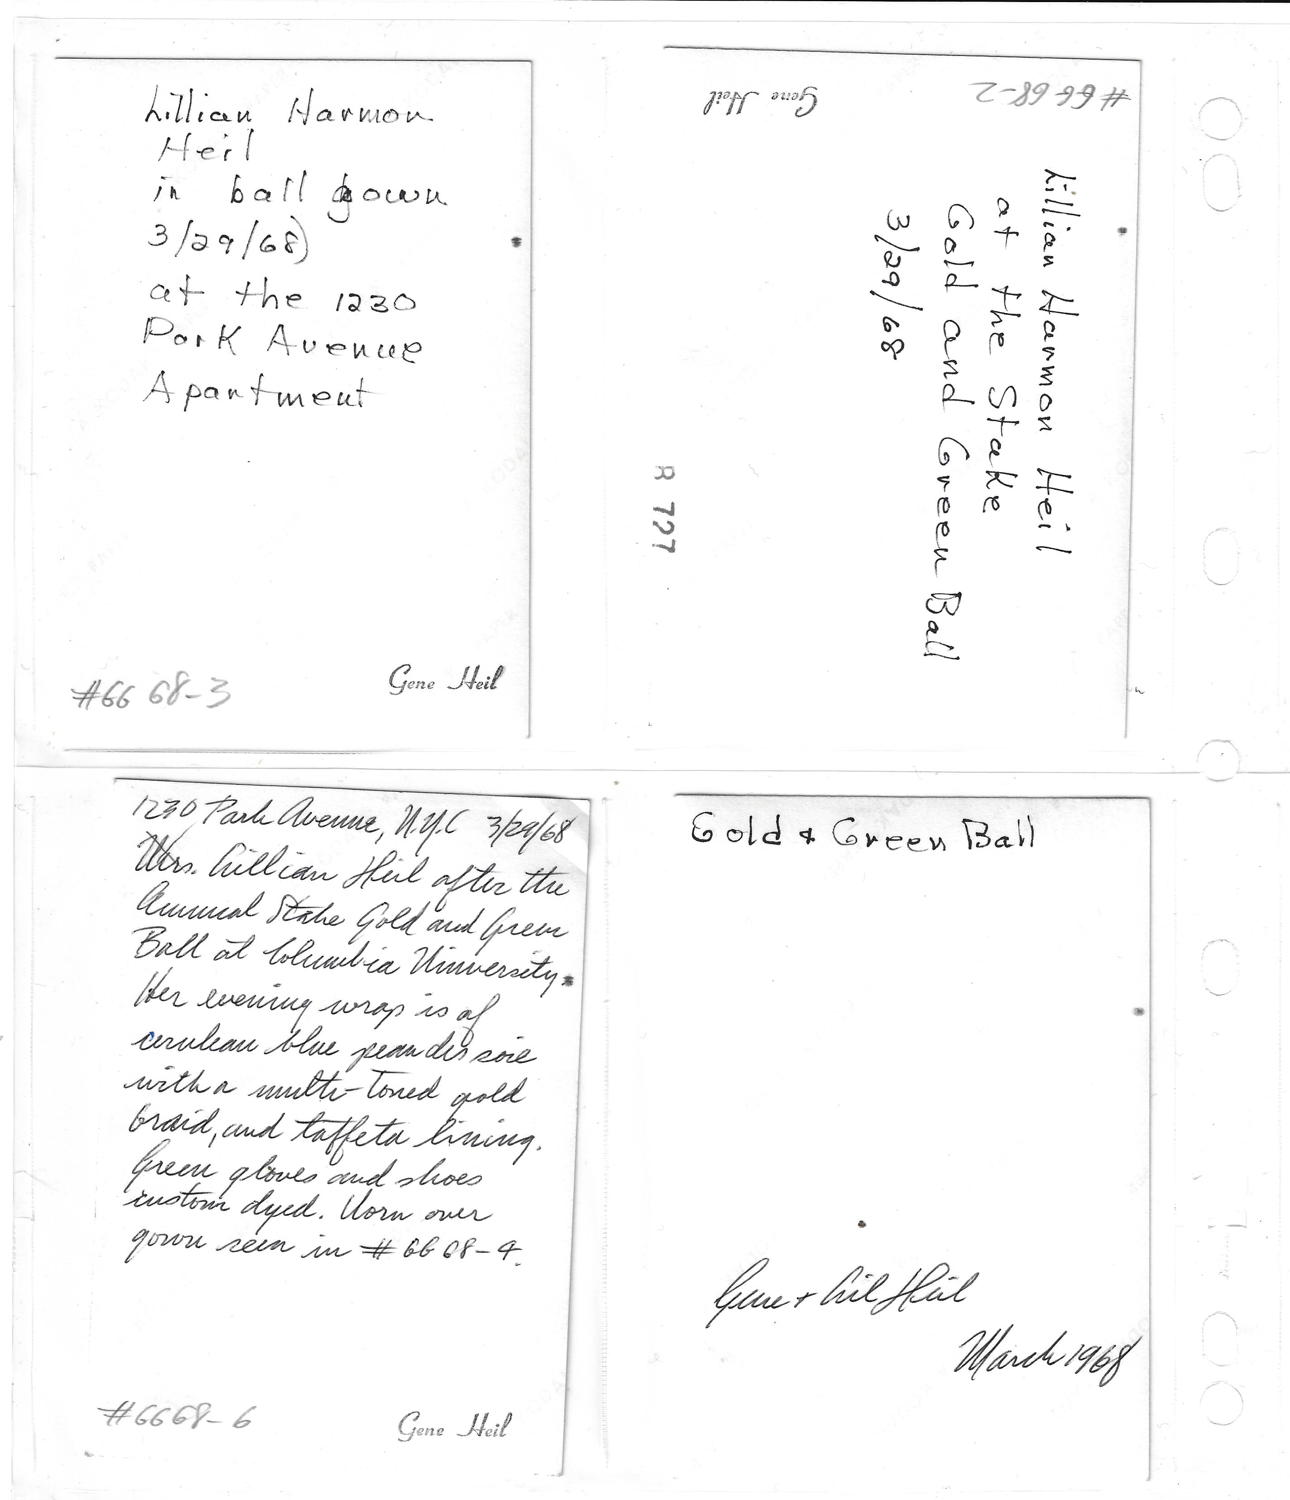 Lillian Harmon
Heil
in ball gown
3/29/68)
at the 1230
Park Avenue
Apartment
#66 68-3
Gene Heil
#66 68-2
Gene Heil
Lillian Harmon Heil
at the Stake
Gold and Green Ball
3/29/68
R 727
1230 Park Avenue, N.Y.C 3/29/68
Mrs. Lillian Heil after the
Annual Stake Gold and Green
Ball at Columbia University.
Her evening wrap is of
cerulean blue peau des soie
with a multi-toned gold
braid, and taffeta lining.
Green gloves and shoes
custom dyed. Worn over
gown seen in #6668-4.
#6668-6
Gene Heil
Gold & Green Ball
Gene + Lil Heil
March 1968